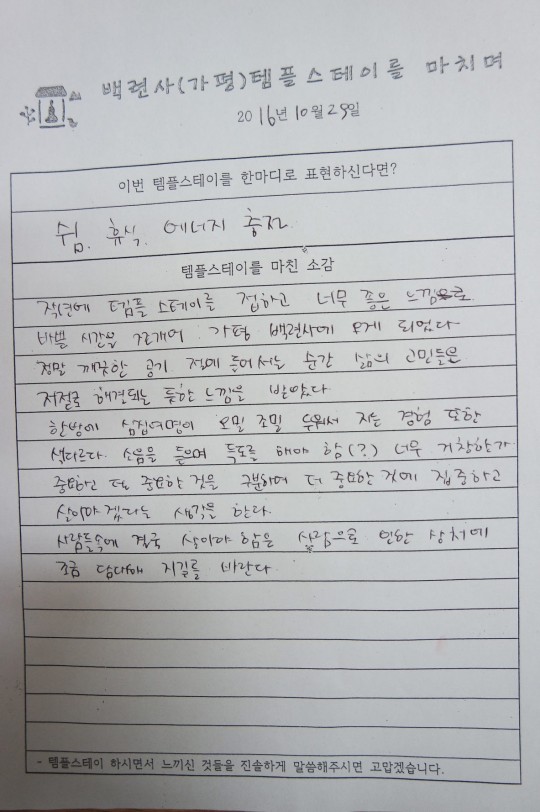 백련사(가평)템플스테이를 마치며
2016년 10월 29일
이번 템플스테이를 한마디로 표현하신다면?
쉼. 휴식. 에너지 충전
템플스테이를 마친 소감
작년에 템플 스테이를 접하고 너무 좋은 느낌으로
바쁜 시간을 쪼개어 가평 백련사에 오게 되었다
정말 깨끗한 공기 절에 들어서는 순간 삶의 고민들은
저절로 해결되는 듯한 느낌을 받았다
한방에 십여명이 오밀 조밀 누워서 자는 경험 또한
색다르다. 소음을 들으며 득도를 해야 함(?) 너무 거창한가
중요하고 더 중요한 것을 구분하여 더 중요한 것에 집중하고
살아야 겠다는 생각을 한다.
사람들속에 결국 살아야 함은 사람으로 인한 상처에
조금 담대해 지길를 바란다
- 템플스테이 하시면서 느끼신 것들을 진솔하게 말씀해주시면 고맙겠습니다.